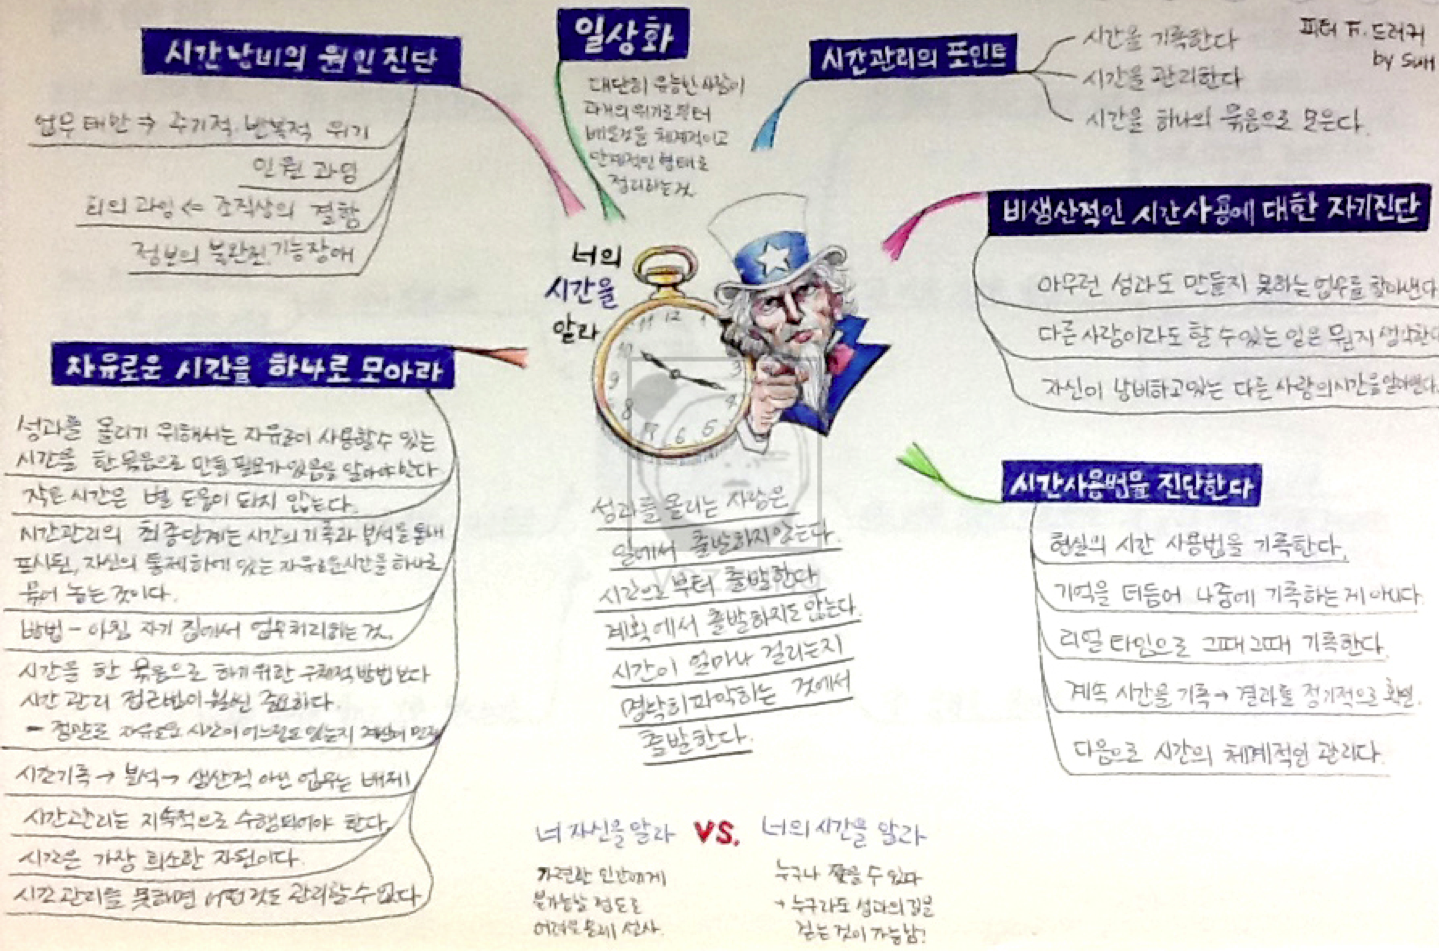 시간낭비의 원인진단
업무태만 → 주기적·반복적 위기
인원 과잉
회의 과잉 ← 조직상의 결함
정보의 불완전, 기능장애
일상화
대단히 유능한 사람이
과거의 위기로부터
배운것을 체계적이고
단계적인 형태로
정리하는 것
시간관리의 포인트
시간을 기록한다
시간을 관리한다
시간을 하나의 묶음으로 모은다.
피터 F. 드러커
by SUH
비생산적인 시간사용에 대한 자기진단
아무런 성과도 만들지 못하는 업무를 찾아낸다
다른 사람이라도 할 수 있는 일은 뭔지 생각한다
자신이 낭비하고있는 다른 사람의 시간을 알아낸다.
너의
시간을
알라
12
1
3
4
5
6
8
9
10
11
자유로운 시간을 하나로 모아라
성과를 올리기 위해서는 자유로이 사용할수 있는
시간을 한 묶음으로 만들 필요가 있음을 알아야 한다
작은 시간은 별 도움이 되지 않는다.
시간관리의 최종단계는 시간의 기록과 분석을 통해
표시된, 자신의 통제하에 있는 자유로운시간을 하나로
묶어 놓는 것이다.
방법 - 아침 자기 집에서 업무처리하는 것.
시간을 한 묶음으로 하기위한 구체적 방법보다
시간 관리 접근법이 훨씬 중요하다
- 정말로 자유로운 시간이 어느정도 있는지
시간기록 → 분석 → 생산적 아닌 업무는 배제!
시간관리는 지속적으로 수행되어야 한다.
시간은 가장 희소한 자원이다.
시간관리를 못하면 어떤것도 관리할수 없다
성과를 올리는 사람은
일에서 출발하지않는다.
시간으로부터 출발한다
계획에서 출발하지도 않는다.
시간이 얼마나 걸리는지
명확히파악하는 것에서
출발한다.
시간사용법을 진단한다
현실의 시간 사용법을 기록한다.
기억을 더듬어 나중에 기록하는게 아니다.
리얼 타임으로 그때그때 기록한다.
계속 시간을 기록 → 결과를 정기적으로 확인.
다음으로 시간의 체계적인 관리다.
너 자신을알라 VS. 너의 시간을 알라
가련한 인간에게
불가능할 정도로
어려운
누구나 할 수 있다
→ 누구라도 성과의 길을
걷는 것이 가능함!